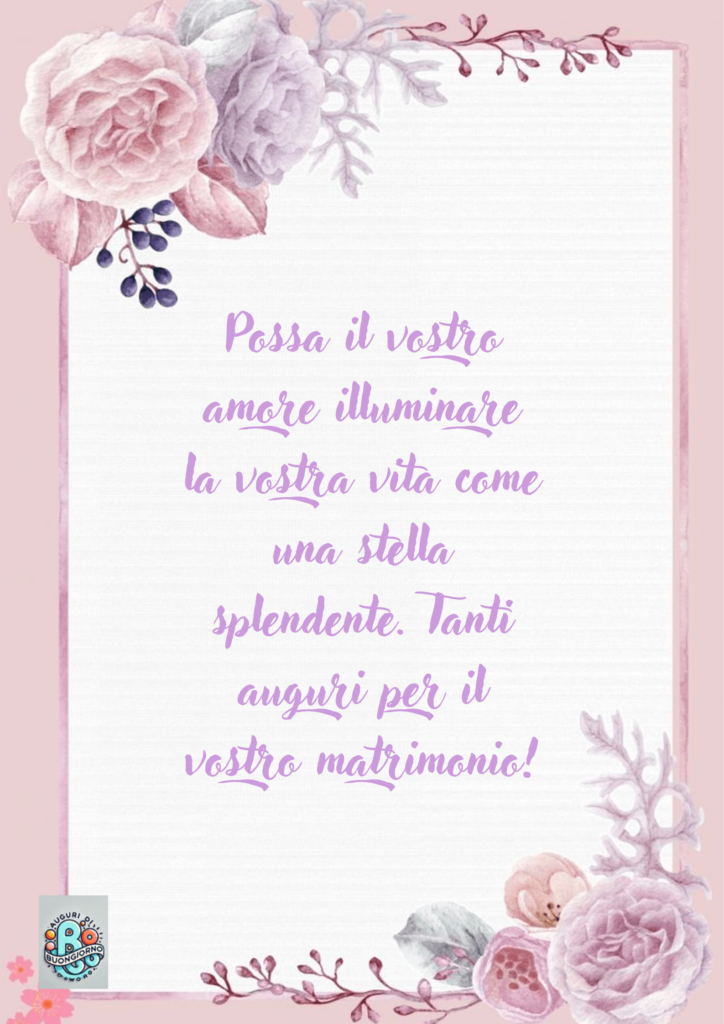 Possa il vostro
amore illuminare
la vostra vita come
una stella
splendente. Tanti
auguri per il
vostro matrimonio!
AUGURI DI
BUONGIORNO